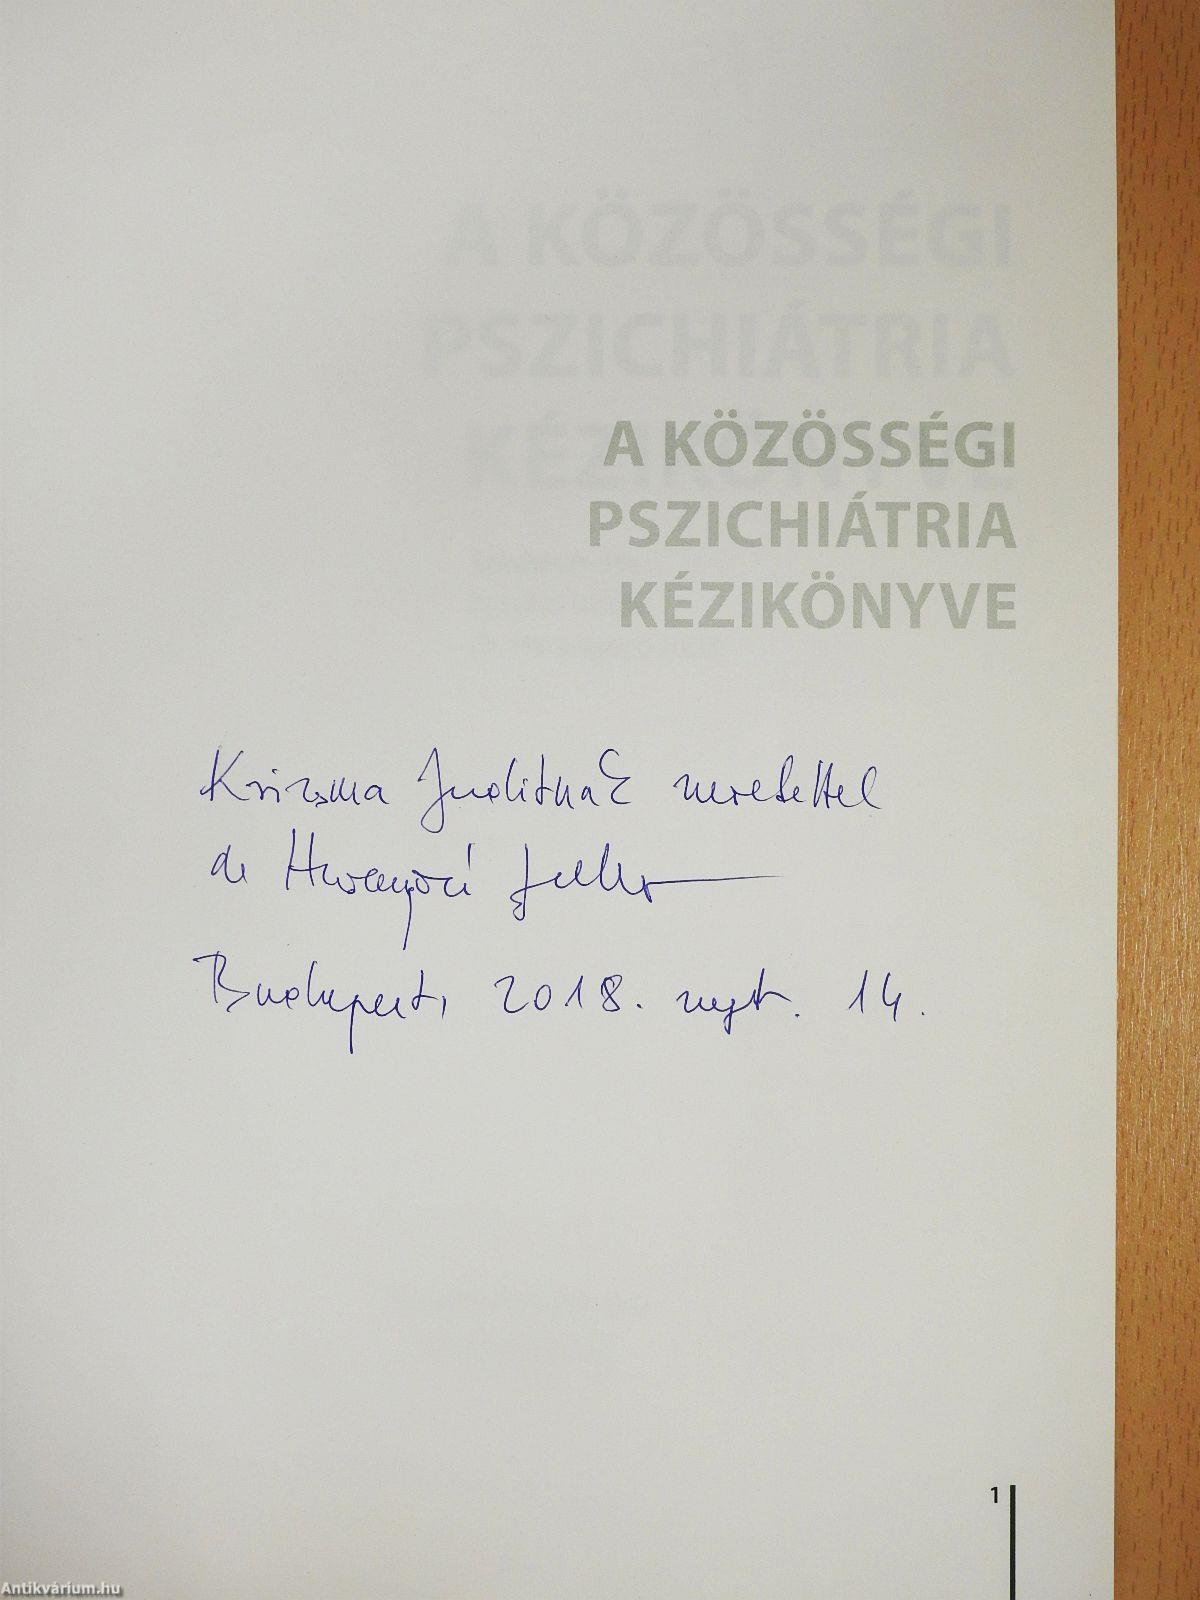 A KÖZÖSSÉGI
PSZICHIÁTRIA
KÉZIKÖNYVE
Krizsma Juditnak szeretettel
dr Harangozó Judit
Budapest, 2018. szept. 14.
1
Antikvárium.hu